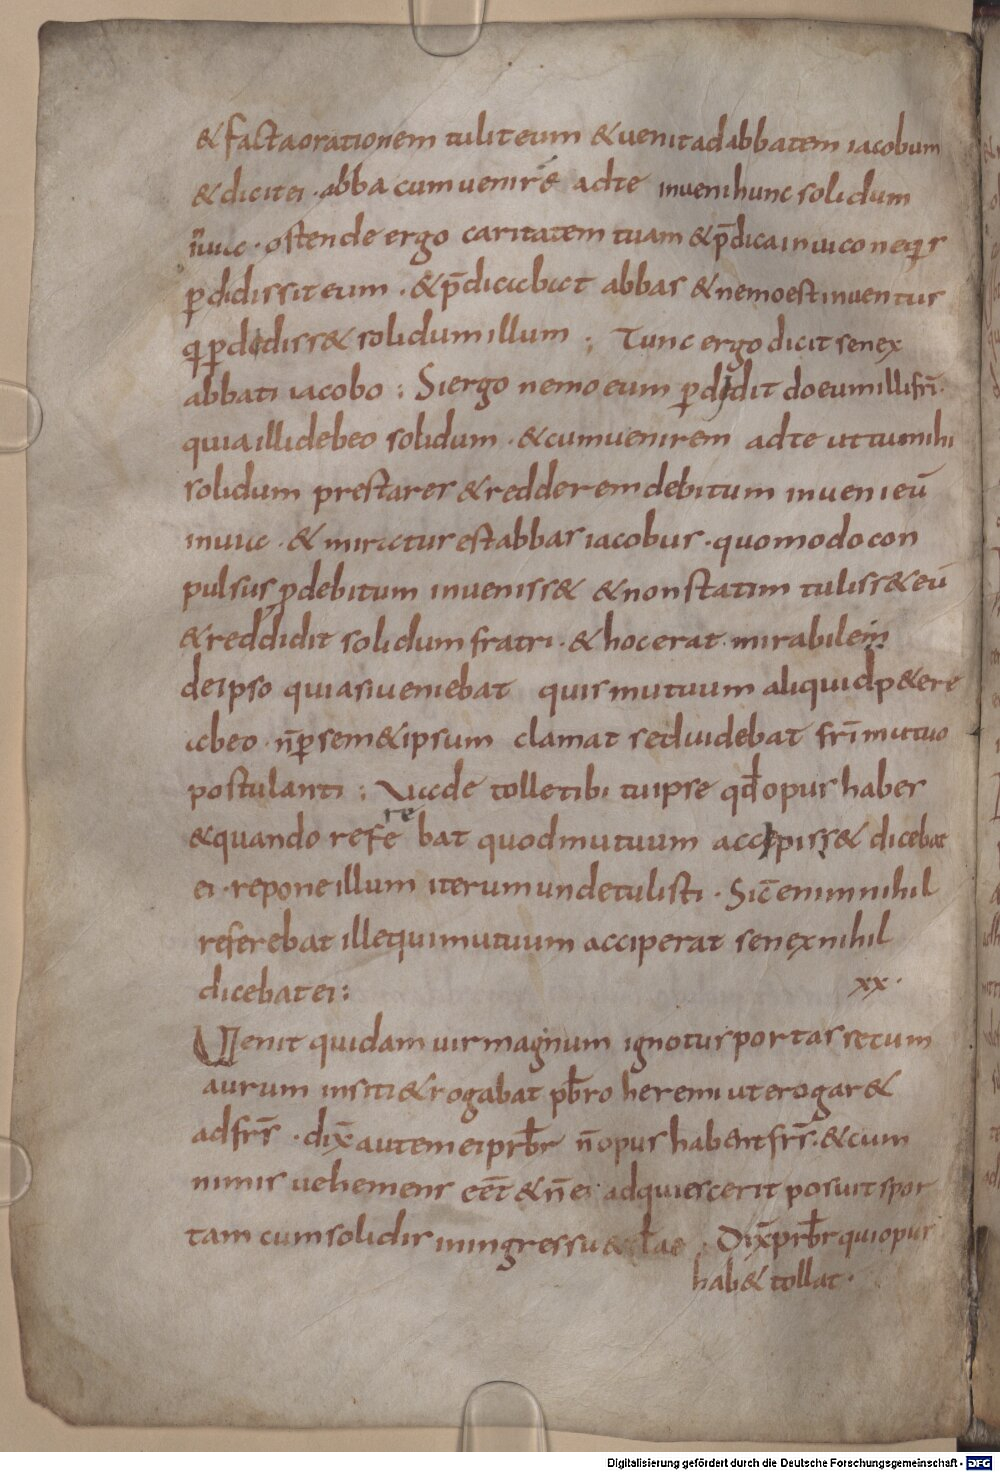 & facta orationem tulit eum & uenit ad abbatem iacobum
& dicit ei · abba cum uenirē ad te inueni hunc solidum
in uia · ostende ergo caritatem tuam & p̄dica in uico ne q̣s
p̱didissit eum · & p̄dicabat abbas & nemo est inuentus
qi p̱didiss& solidum illum ; Tunc ergo dicit senex
abbati iacobo : Si ergo nemo eum p̱didit do eum illi fr̄i ·
quia illi debeo solidum · & cum uenirem ad te ut tu mihi
solidum prestares & redderem debitum inueni eū
in uia · & miratur est abbas iacobus · quomodo con
pulsus p debitum inueniss& & non statim tuliss& eū
& reddidit solidum fratri · & hoc erat mirabile in
de ipso quia si ueniebat quis mutuum aliquid p&ere
ab eo · n̄ p̱ sem&ipsum clamat sed uidebat fr̄i mutuo
postulanti : Uade tolle tibi tu ipse qđ opus habes
& quando refe re bat quod mutuum accepiss& dicebat
ei · repone illum iterum unde tulisti · Sic̄ enim nihil
referebat ille qui mutuum acciperat senex nihil
dicebat ei :
xx ·
Uenit quidam uir magnum ignotus portas secum
aurum in siti & rogabat pb̄ro heremi ut erogar&
ad fr̄s · dix̄ autem ei prb̄r n̄ opus habent fr̄s · & cum
nimis uehemens eēt & n̄ ei adquiescerit posuit spor
tam cum solidis in ingressu Dix̄ prb̄r qui opus
hab& tollat ·
Digitalisierung gefördert durch die Deutsche Forschungsgemeinschaft - DFG